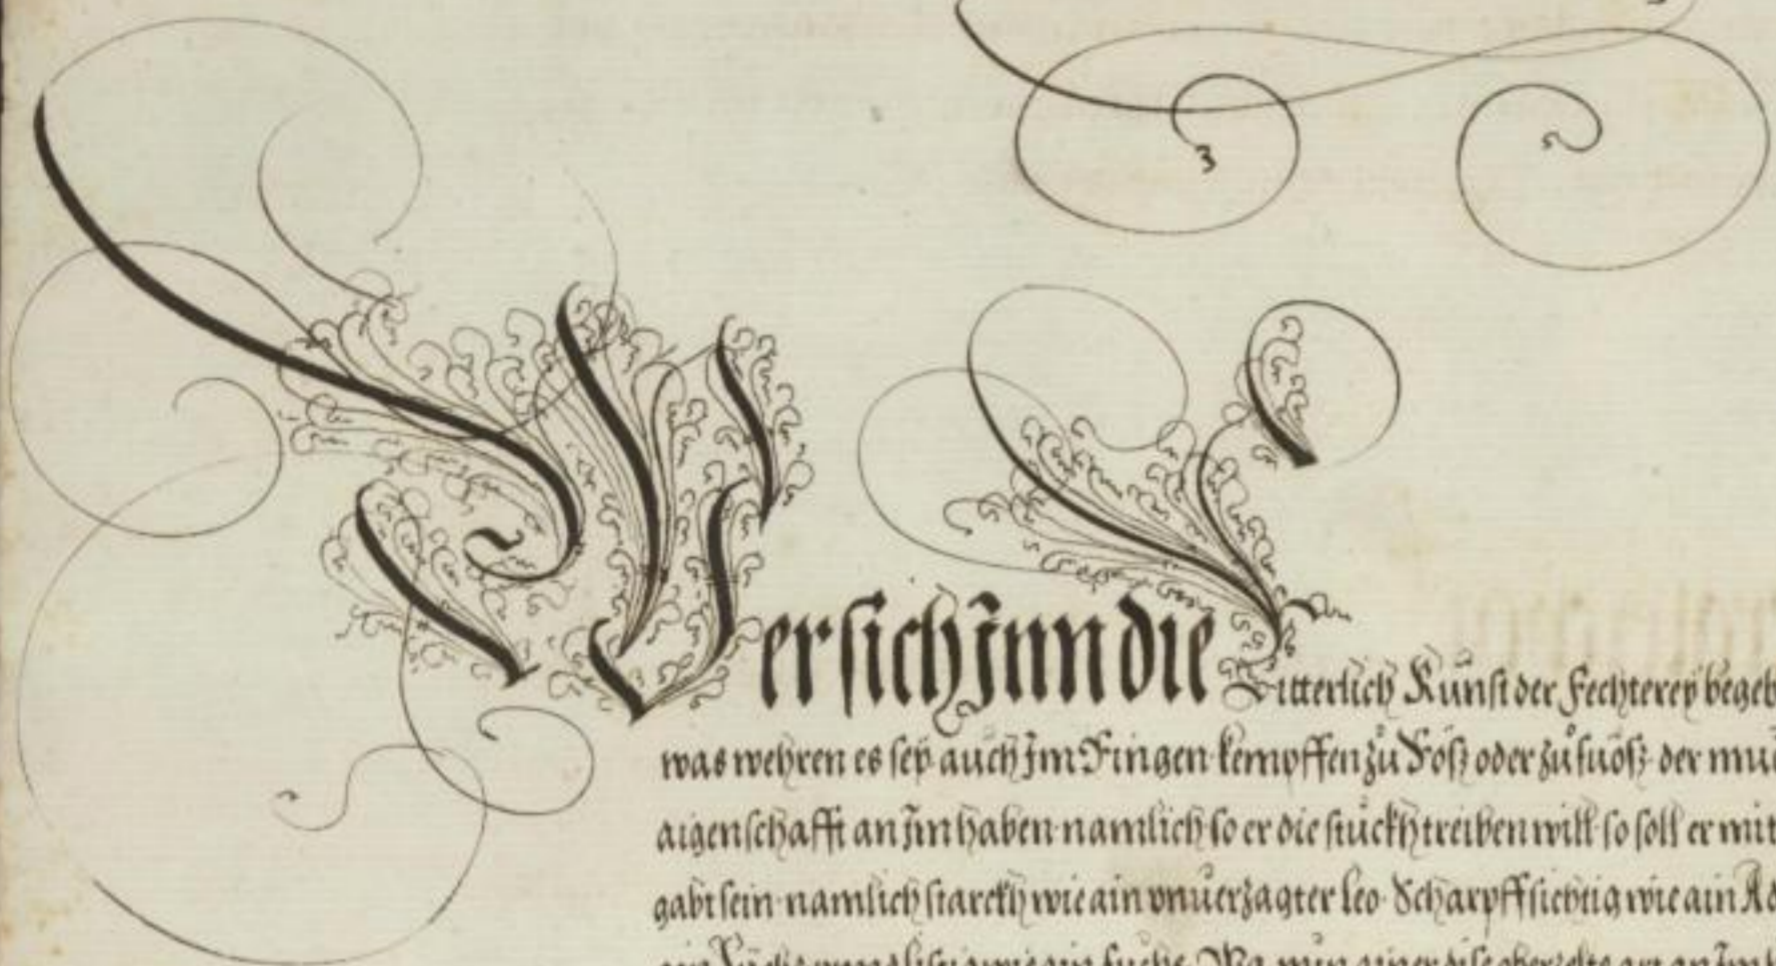 Wer sich Inn die Ritterlich Kunst der Fechterey begeb
was wehren es seÿ auch Im Ringen kempffen zů Roß oder zů fuoß der mu
aigenschafft an Im haben namlich so er die stuckh treiben will so soll er mit
gabt sein namlich starckh wie ain vnuerzagter leo Scharpffsichtig wie ain Ad